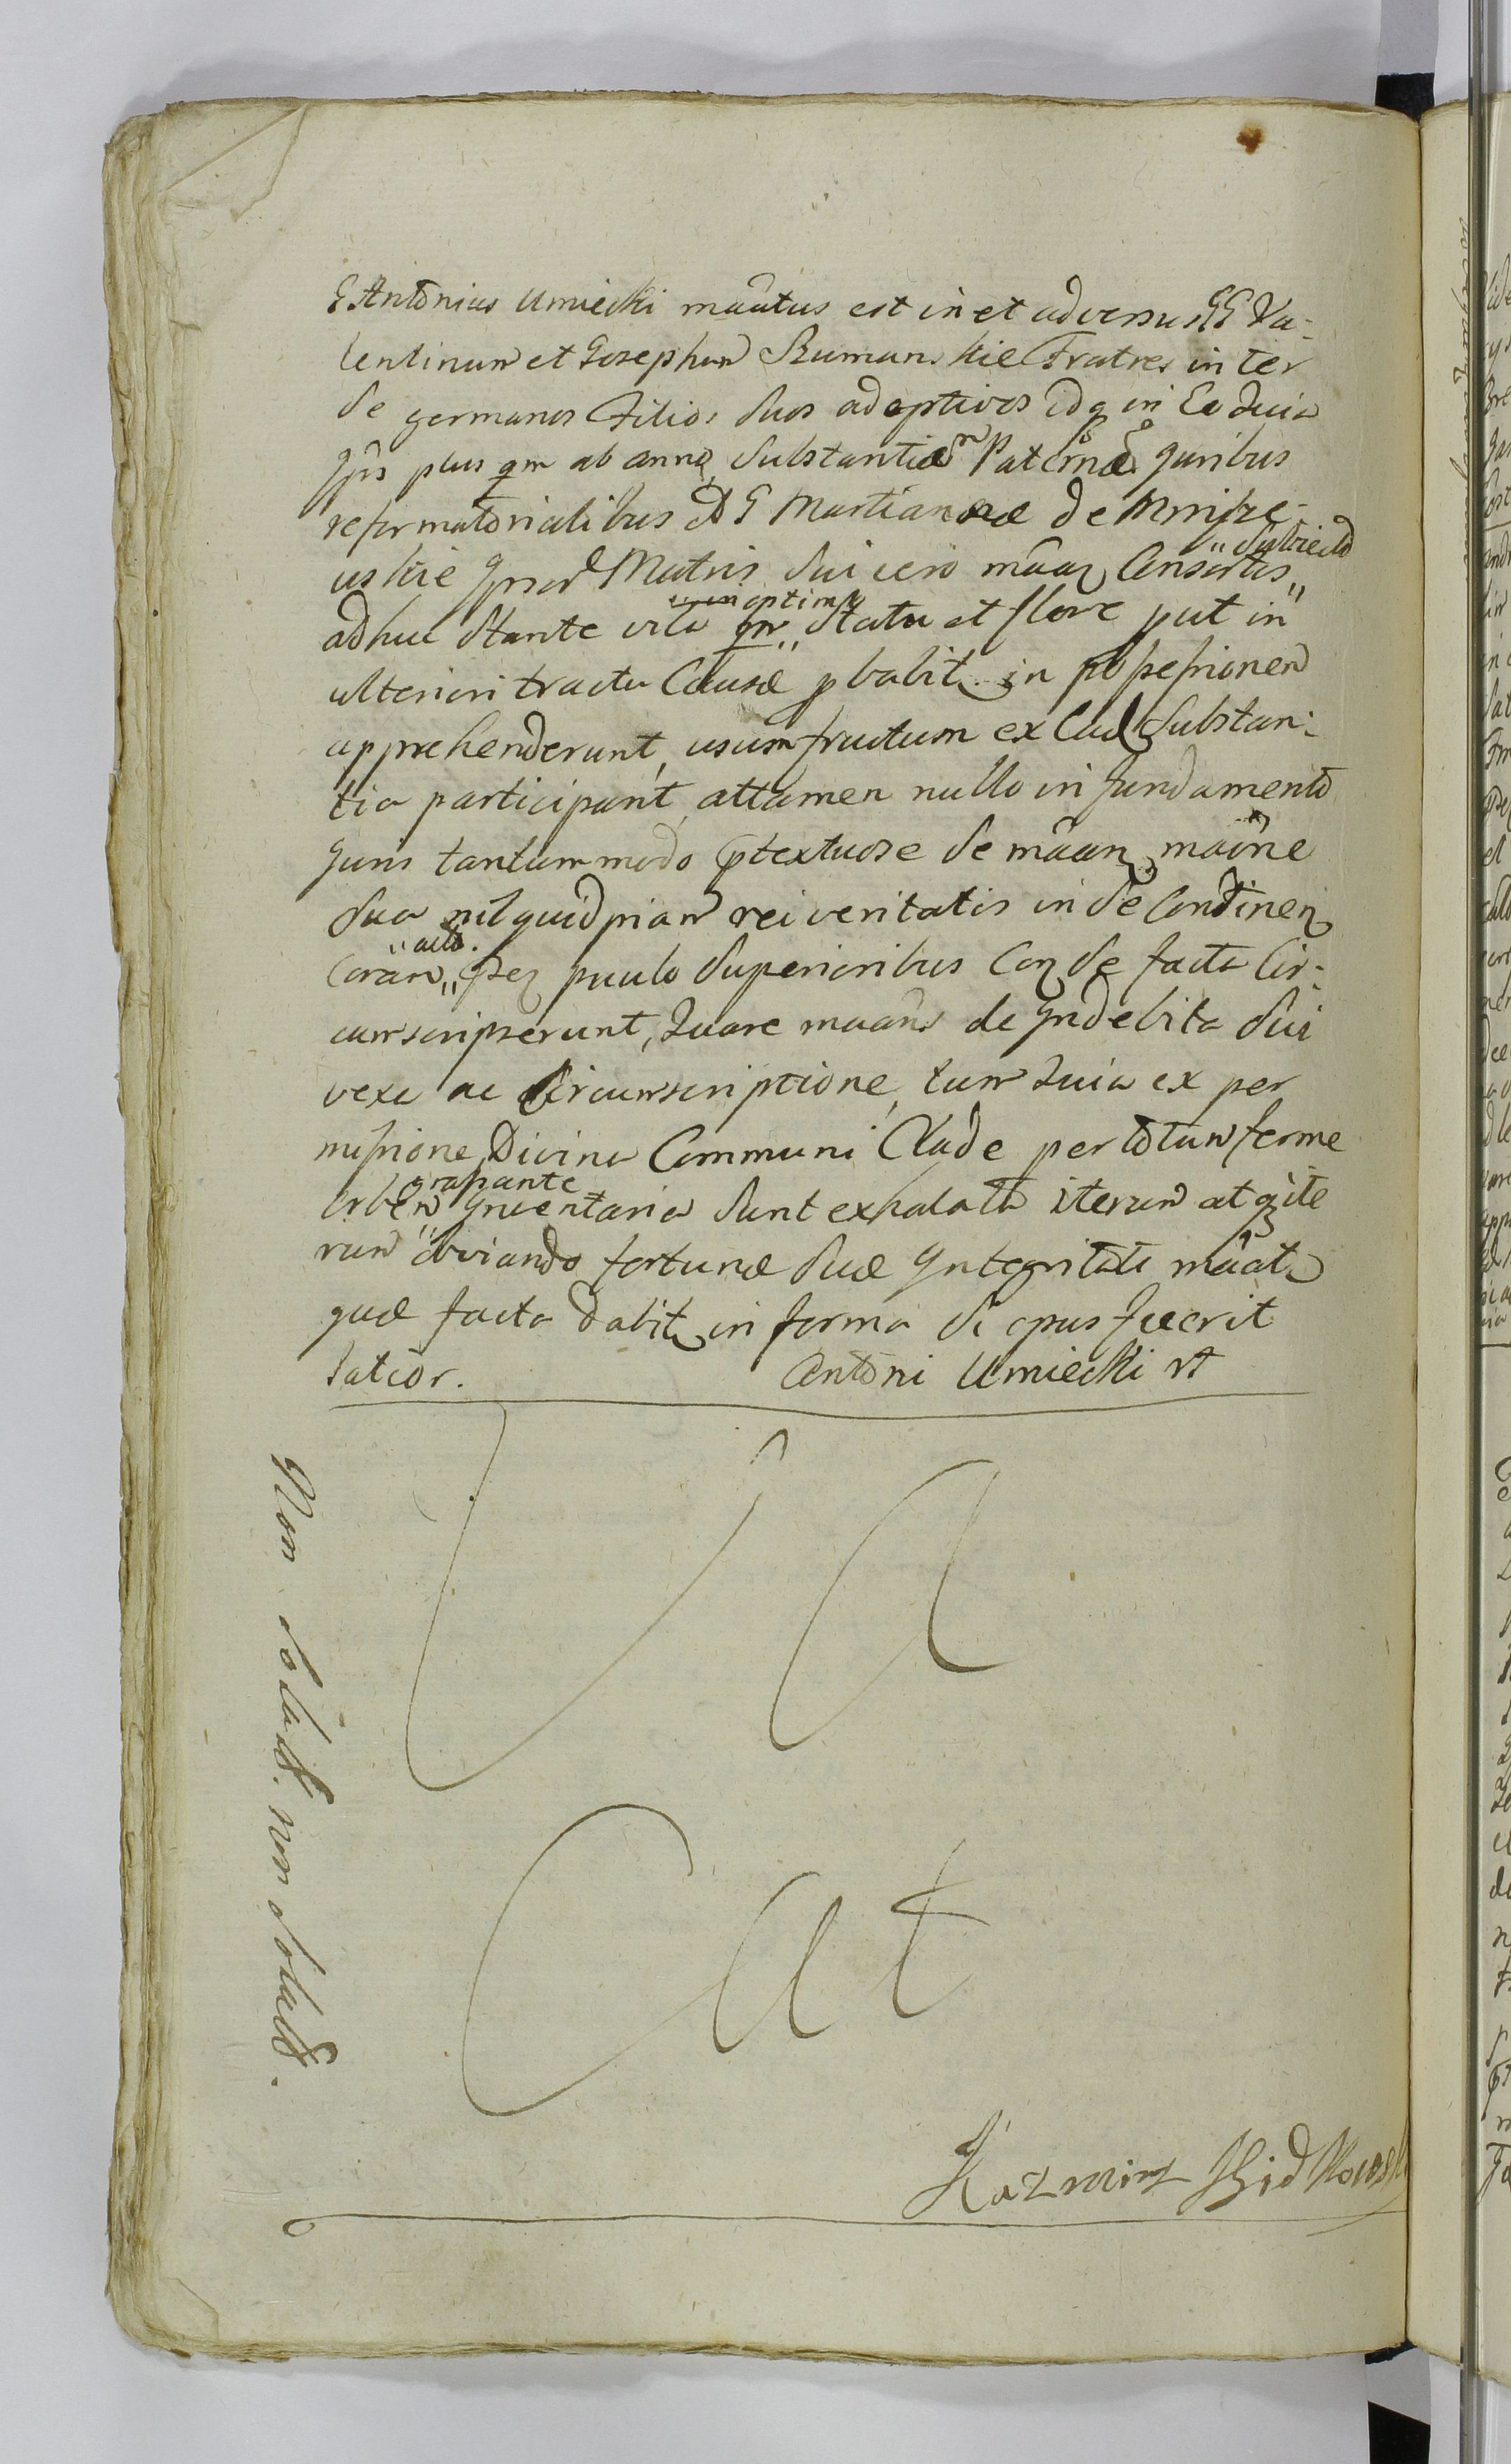 G Antonius Umiecki mãntus est in et adversus GG Va-
lentinum et Josephum Rumunskie Fratres inter
se germanos Filios suos adoptivos idq in Eo Quia
Ipsi plus qm ab anno Substantiam Paternam Juribus
reformatorialibus G Martiannae de Mnisze-
wskie Matris sui vero Consortis „subiectam
adhuc stante vita „in optimo Statu et flore put in
ulteriori tractu Causae pbabit in possessionem
apprehenderunt, usumfructum ex Substan-
tia participant, attamen nullo in fundamento
Juris tantummodo ptextuose se
sua nilquidpiam rei veritatis in se Continen
Coram „actis paulo Superioribus de facto Cir-
cumscripserunt, Quare de Indebita sui
vexa ac Circumscriptione, tum Quia ex per
missione Divina Communi Clade per totum ferme
orbem „grassante Inventaria sunt exhalata iterum atq ite
rum obviando fortunae suae Integritati
quae facta dabit in forma si opus fuerit
latior. Antoni Umiecki
Va
Cat
Kazmirz
Non solut. non solut.